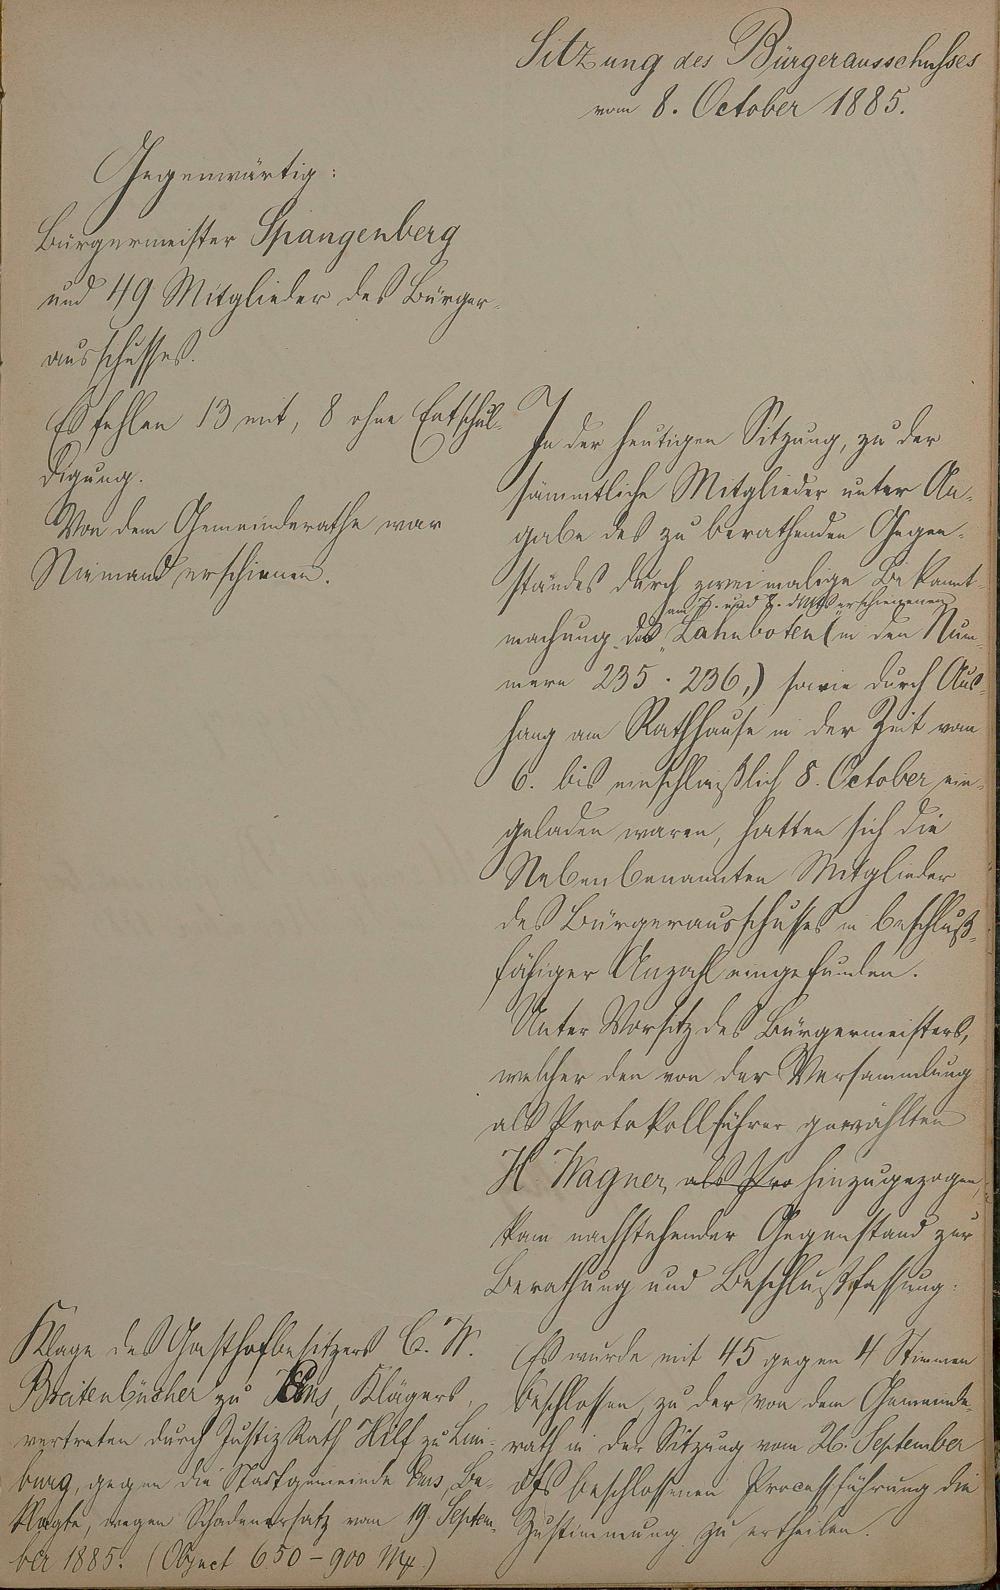 Sitzung des Bürgerausschusses
vom 8. October 1885.
Gegenwärtig:
Bürgermeister Spangenberg
und 49 Mitglieder des Bürger-
ausschusses.
Es fehlen 13 mit, 8 ohne Entschul-
digung.
Von dem Gemeinderathe war
Niemand erschienen.
In der heutigen Sitzung, zu der
sämmtliche Mitglieder unter An-
gabe des zu berathenden Gegen-
standes durch zweimalige Bekannt-
am 7. und 8. dMts erschienenen
machung des „Lahnboten (in den Num-
mern 235 . 236,) sowie durch Aus-
hang am Rathhause in der Zeit vom
6. bis einschließlich 8. October ein-
geladen waren, hatten sich die
Nebenbenannten Mitglieder
des Bürgerausschusses in beschluß-
fähiger Anzahl eingefunden.
Unter Vorsitz des Bürgermeisters,
welcher den von der Versammlung
als Protokollführer gewählten
H. Wagner, als Pro hinzugezogen,
kam nachstehender Gegenstand zur
Berathung und Beschlußfassung:
Klage des Gasthofbesitzers C. W.
Breitenbücher zu Ems, Klägers,
vertreten durch Justiz Rath Hilf zu Lim-
burg, gegen die Stadtgemeinde Ems, Be-
klagte, wegen Schadenersatz vom 19. Septem-
ber 1885. (Object 650 – 900 Mk.)
Es wurde mit 45 gegen 4 Stimmen
beschlossen, zu der von dem Gemeinde-
rath in der Sitzung vom 26. September
dJs beschlossenen Proceßführung die
Zustimmung zu ertheilen.